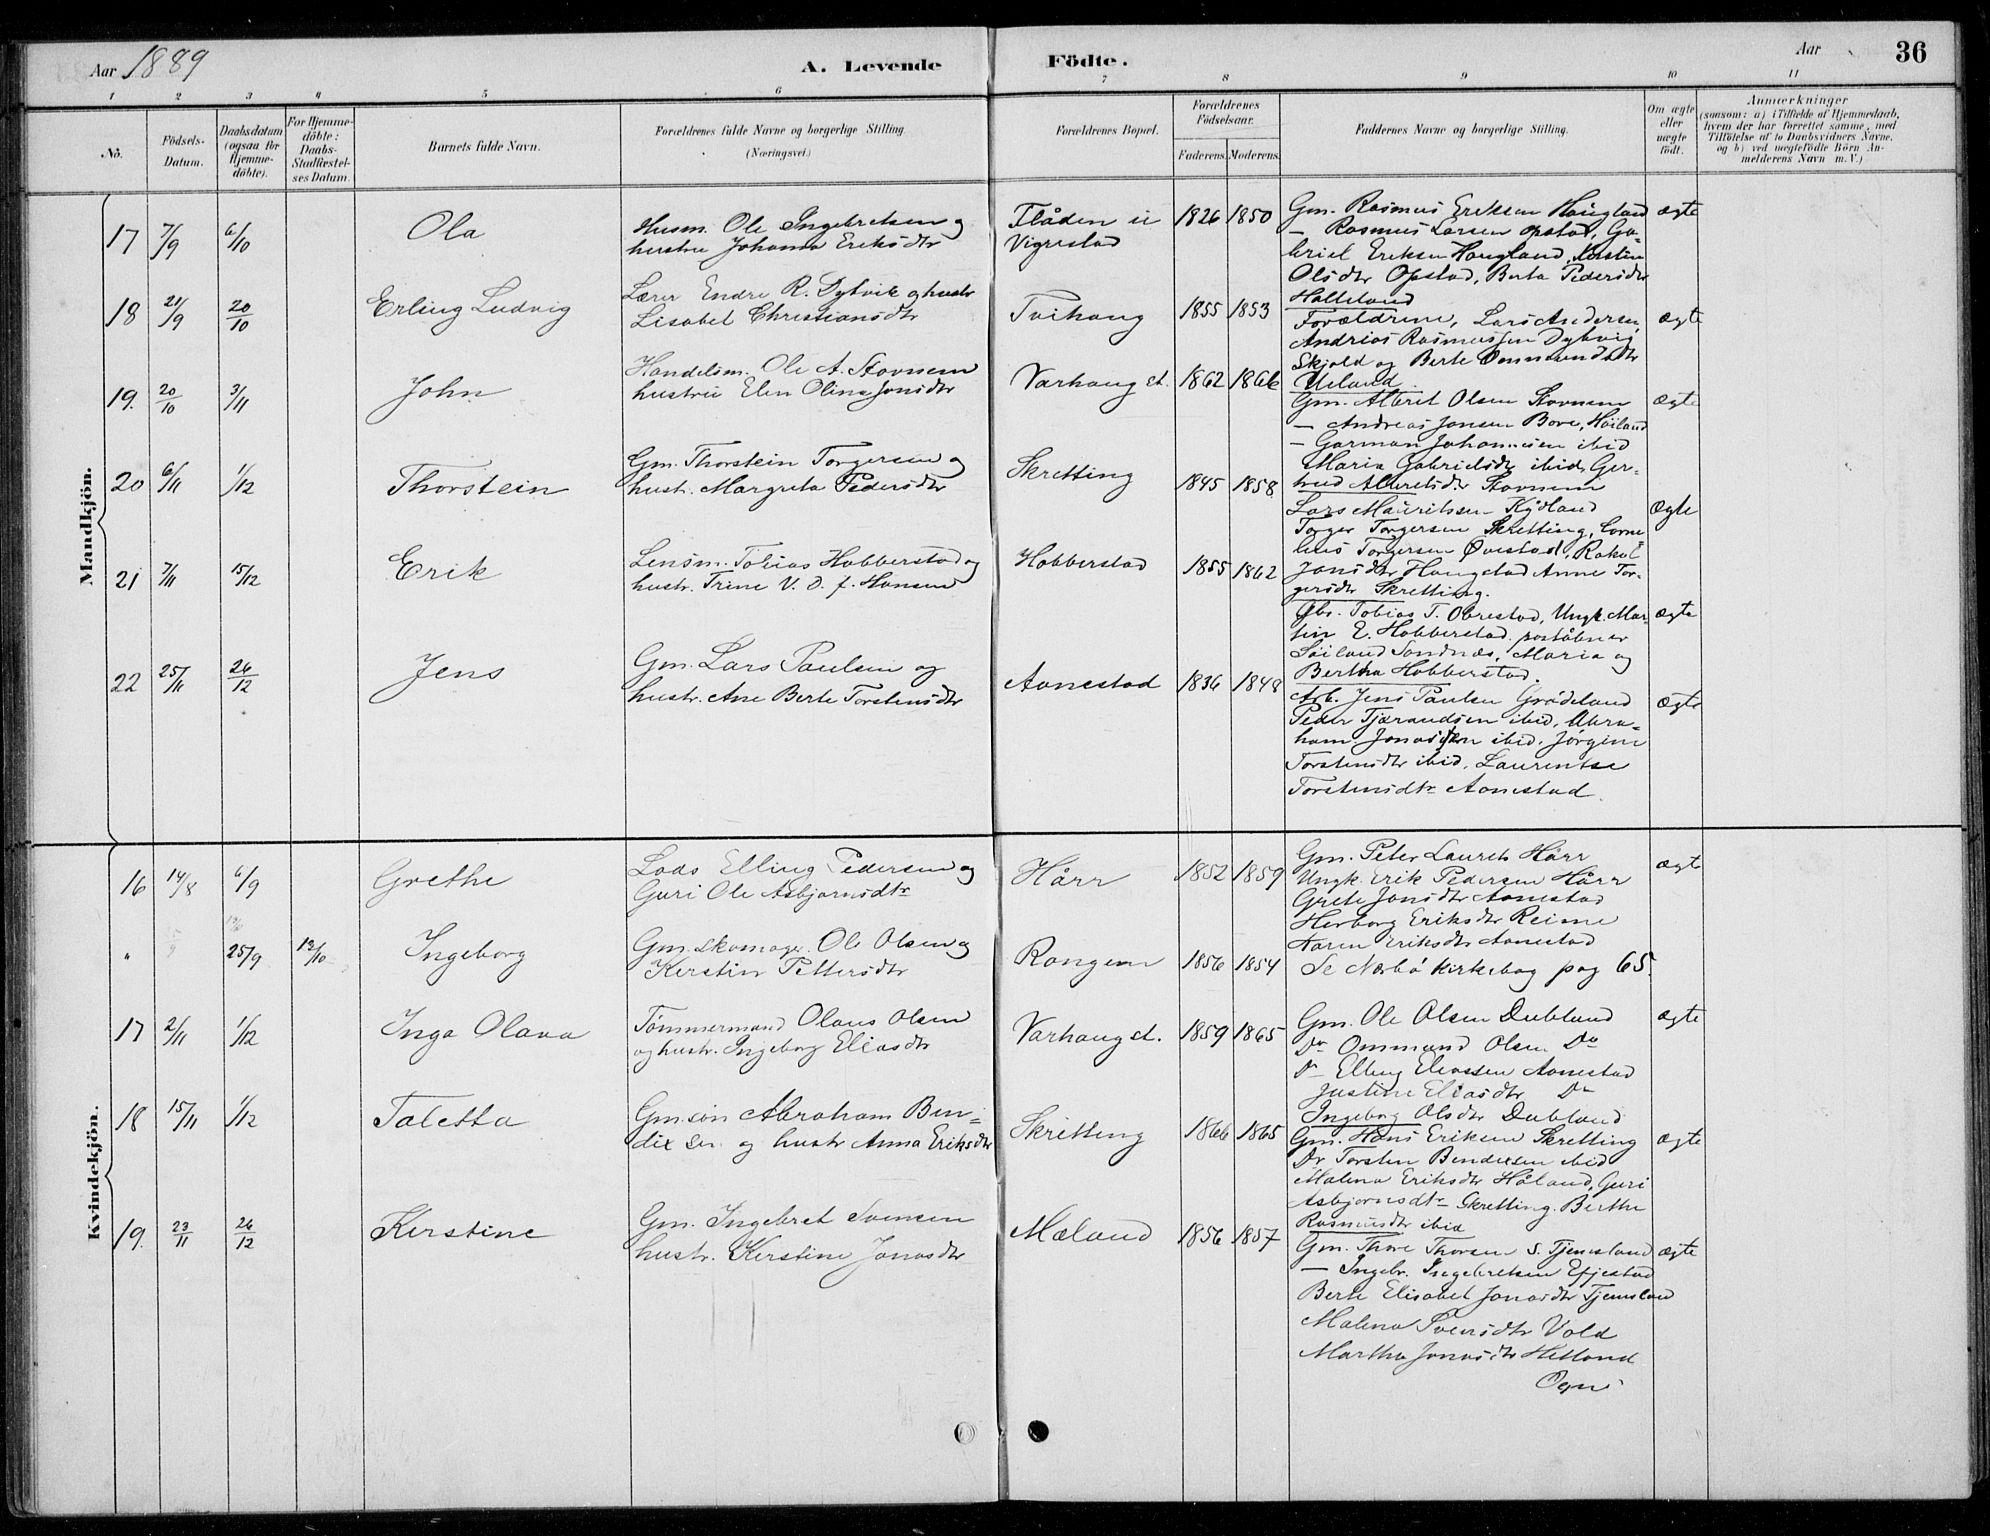 Aar 1889
A. Levende Födte.
Aar
36
1 2 3 4 5 6 7 8 9 10 11
No.
Födsels-Datum.
Daabsdatum (ogsaa for Hjemmedöbte).
For Hjemmedöbte: Daabs-Stadfæstelses Datum.
Barnets fulde Navn.
Forældrenes fulde Navne og borgerlige Stilling.
(Næringsvei.)
Forældrenes Bopæl.
Forældrenes Födselsaar.
Faderens. Moderens.
Faddernes Navne og borgerlige Stilling.
Om ægte eller uægte födt.
Anmærkninger
(saasom: a) i Tilfælde af Hjemmedaab, hvem der har forrettet samme, med Tilföielse af to Daabsvidners Navne, og b) ved uægtefödte Börn Anmelderens Navn m. V.)
Mandkjön.
17 7/9 6/10 Ola
Husm. Ole Ingebretsen og
hustru Johanna Eriksdtr
Flåden u
Vigrestad
1826 1850
Gm. Rasmus Eriksen Haugland
— Rasmus Larsen Opstad, Ga-
briel Eriksen Haugland, Kirstin
Olsdtr Opstad, Berta Pedersdtr
Halleland
ægte
18 21/9 20/10 Erling Ludvig
Lærer Endre R. Dybvik og hustr
Lisabet Christiansdtr
Tvihaug
1855 1853
Forældrene, Lars Andersen,
Andreas Rasmussen Dybvig
Skjold og Berte Ommundsdtr
Ueland.
ægte
19. 20/10 3/11 John
Handelsm. Ole A. Stovnem
hustru Elen Oline Jonsdtr
Varhaug st.
1862 1866
Gm. Albret Olsen Stovnem
— Andreas Jonsen Bore, Höiland
— Garman Johannesen ibid
Maria Gabrielsdtr ibid, Ger-
trud Albretsdtr Stovnem
ægte
20 6/11 1/12 Thorstein
Gm. Thorstein Torgersen og
hustr. Margreta Pedersdtr
Skretting
1845 1858
Lars Mauritssen Kydland
Torger Torgersen Skretting, Corne-
lius Torgersen Øvestad, Rakel
Jonsdtr Haugstad Anne Tor-
gersdtr Skretting.
ægte
21 7/11 15/12 Erik
Lensm. Tobias Hobberstad og
hustr. Trine V. D. f. Hansen
Hobberstad
1855 1862
Gbr. Tobias T. Obrestad, Ungk. Mar-
tin E. Hobberstad. postålner
Söiland Sandnæs, Maria og
Bertha Hobberstad.
ægte
22 25/11 26/12 Jens
Gm. Lars Paulsen og
hustr. Ane Berte Torstensdtr
Aanestad
1836 1848
Arb. Jens Paulsen Grödeland
Peder Tjærandsen ibid, Abra-
ham Jonassen ibid. Jörgine
Torstensdtr ibid. Laurentse
Torstensdtr Aanestad.
ægte
Kvindekjön.
16 14/8 6/9 Grethe
Lods Elling Pedersen og
Guri Ole Asbjornsdtr
Hårr
1852 1859
Gm. Peter Laurets Hårr
Ungk. Erik Pedersen Hårr
Grete Jonsdtr Aanestad
Herborg Eriksdtr Reime
Karen Eriksdtr Aanestad
ægte
" 25/9 13/10 Ingeborg
Gm. skomager. Ole Olsen og
Kerstin Pettersdtr
Rongen
1856 1854
Se Nærbö kirkebog pag 65.
17 2/11 1/12 Inga Olava
Tömmermand Olaus Olsen
og hustr. Ingeborg Eliasdtr
Varhaug st.
1859 1865
Gm. Ole Olsen Dubland
Do Ommund Olsen Do
Do Elling Eliassen Aanestad
Justine Eliasdtr Do
Ingeborg Olsdtr Dubland
ægte
18 15/11 1/12 Taletta
Gm.sön Abraham Ben-
dixsen og hustr Anna Eriksdtr
Skretting
1866 1865
Gm. Hans Eriksen Skretting
Do Torsten Bendixsen ibid
Malena Eriksdtr Håland, Guri
Asbjornsdtr Skretting. Berthe
Rasmusdtr ibid
ægte
19. 23/11 26/12 Kerstine
Gm. Ingebret Svensen
hustr. Kerstine Jonasdtr
Mæland
1856 1857
Gm. Thore Thorsen S. Tjemsland
— Ingebr. Ingebretsen Efjestad
Berte Elisabet Jonasdtr Tjemsland
Malena Svensdtr Vold
Martha Jonasdtr Hetland
Ogne
ægte